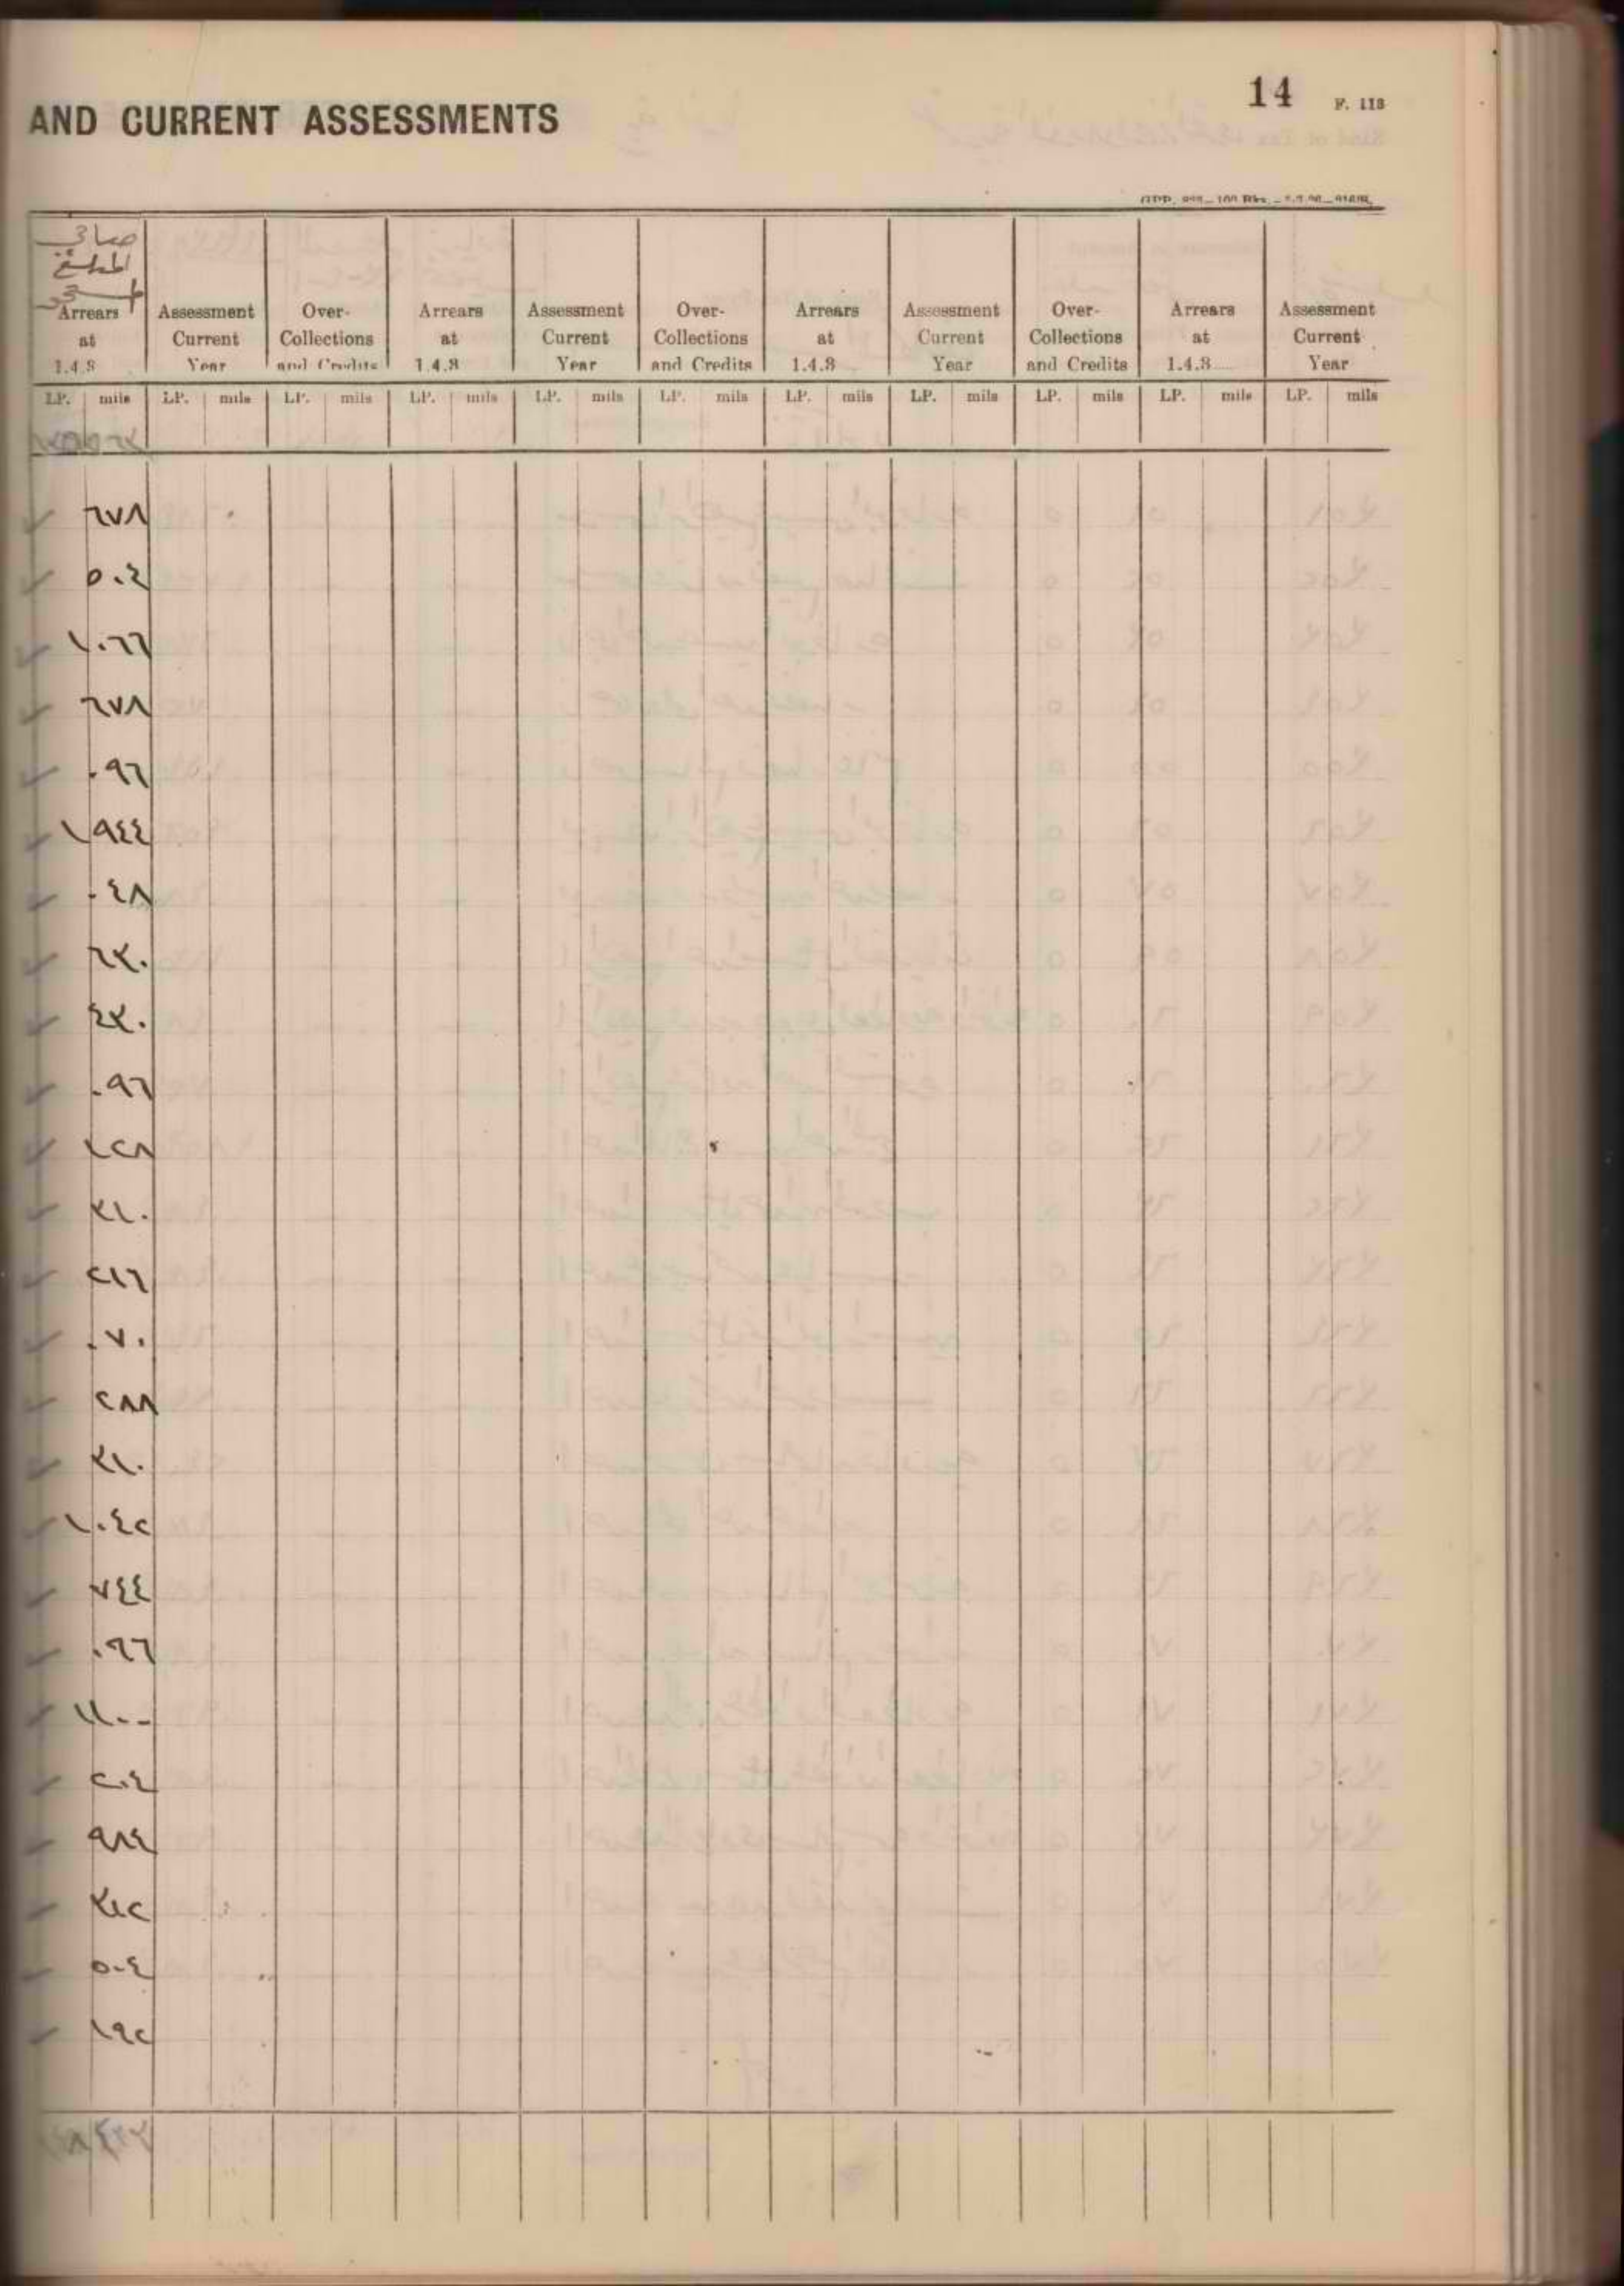 14 F. 113
AND CURRENT ASSESSMENTS
صافي
المبلغ
Arrears at 1.4.8 Assessment Current Year Over-Collections and Credits Arrears at 1.4.8 Assessment Current Year Over-Collections and Credits Arrears at 1.4.8 Assessment Current Year Over-Collections and Credits Arrears at 1.4.8 Assessment Current Year
LP. mils LP. mils LP. mils LP. mils LP. mils LP. mils LP. mils LP. mils LP. mils LP. mils LP. mils
٦٧٨
٥٠٤
١ ٠٦٦
٦٧٨
٠٩٦
١ ٩٤٤
٠٤٨
٦٣٠
٤٣٠
٠٩٦
١٢٨
٣١٠
٢١٦
٠٧٠
٢٨٨
٣١٠
١ ٠٤٢
٧٤٤
٠٩٦
١ ١٠٠
٢٠٤
٩٨٤
٣١٢
٥٠٤
١٩٢